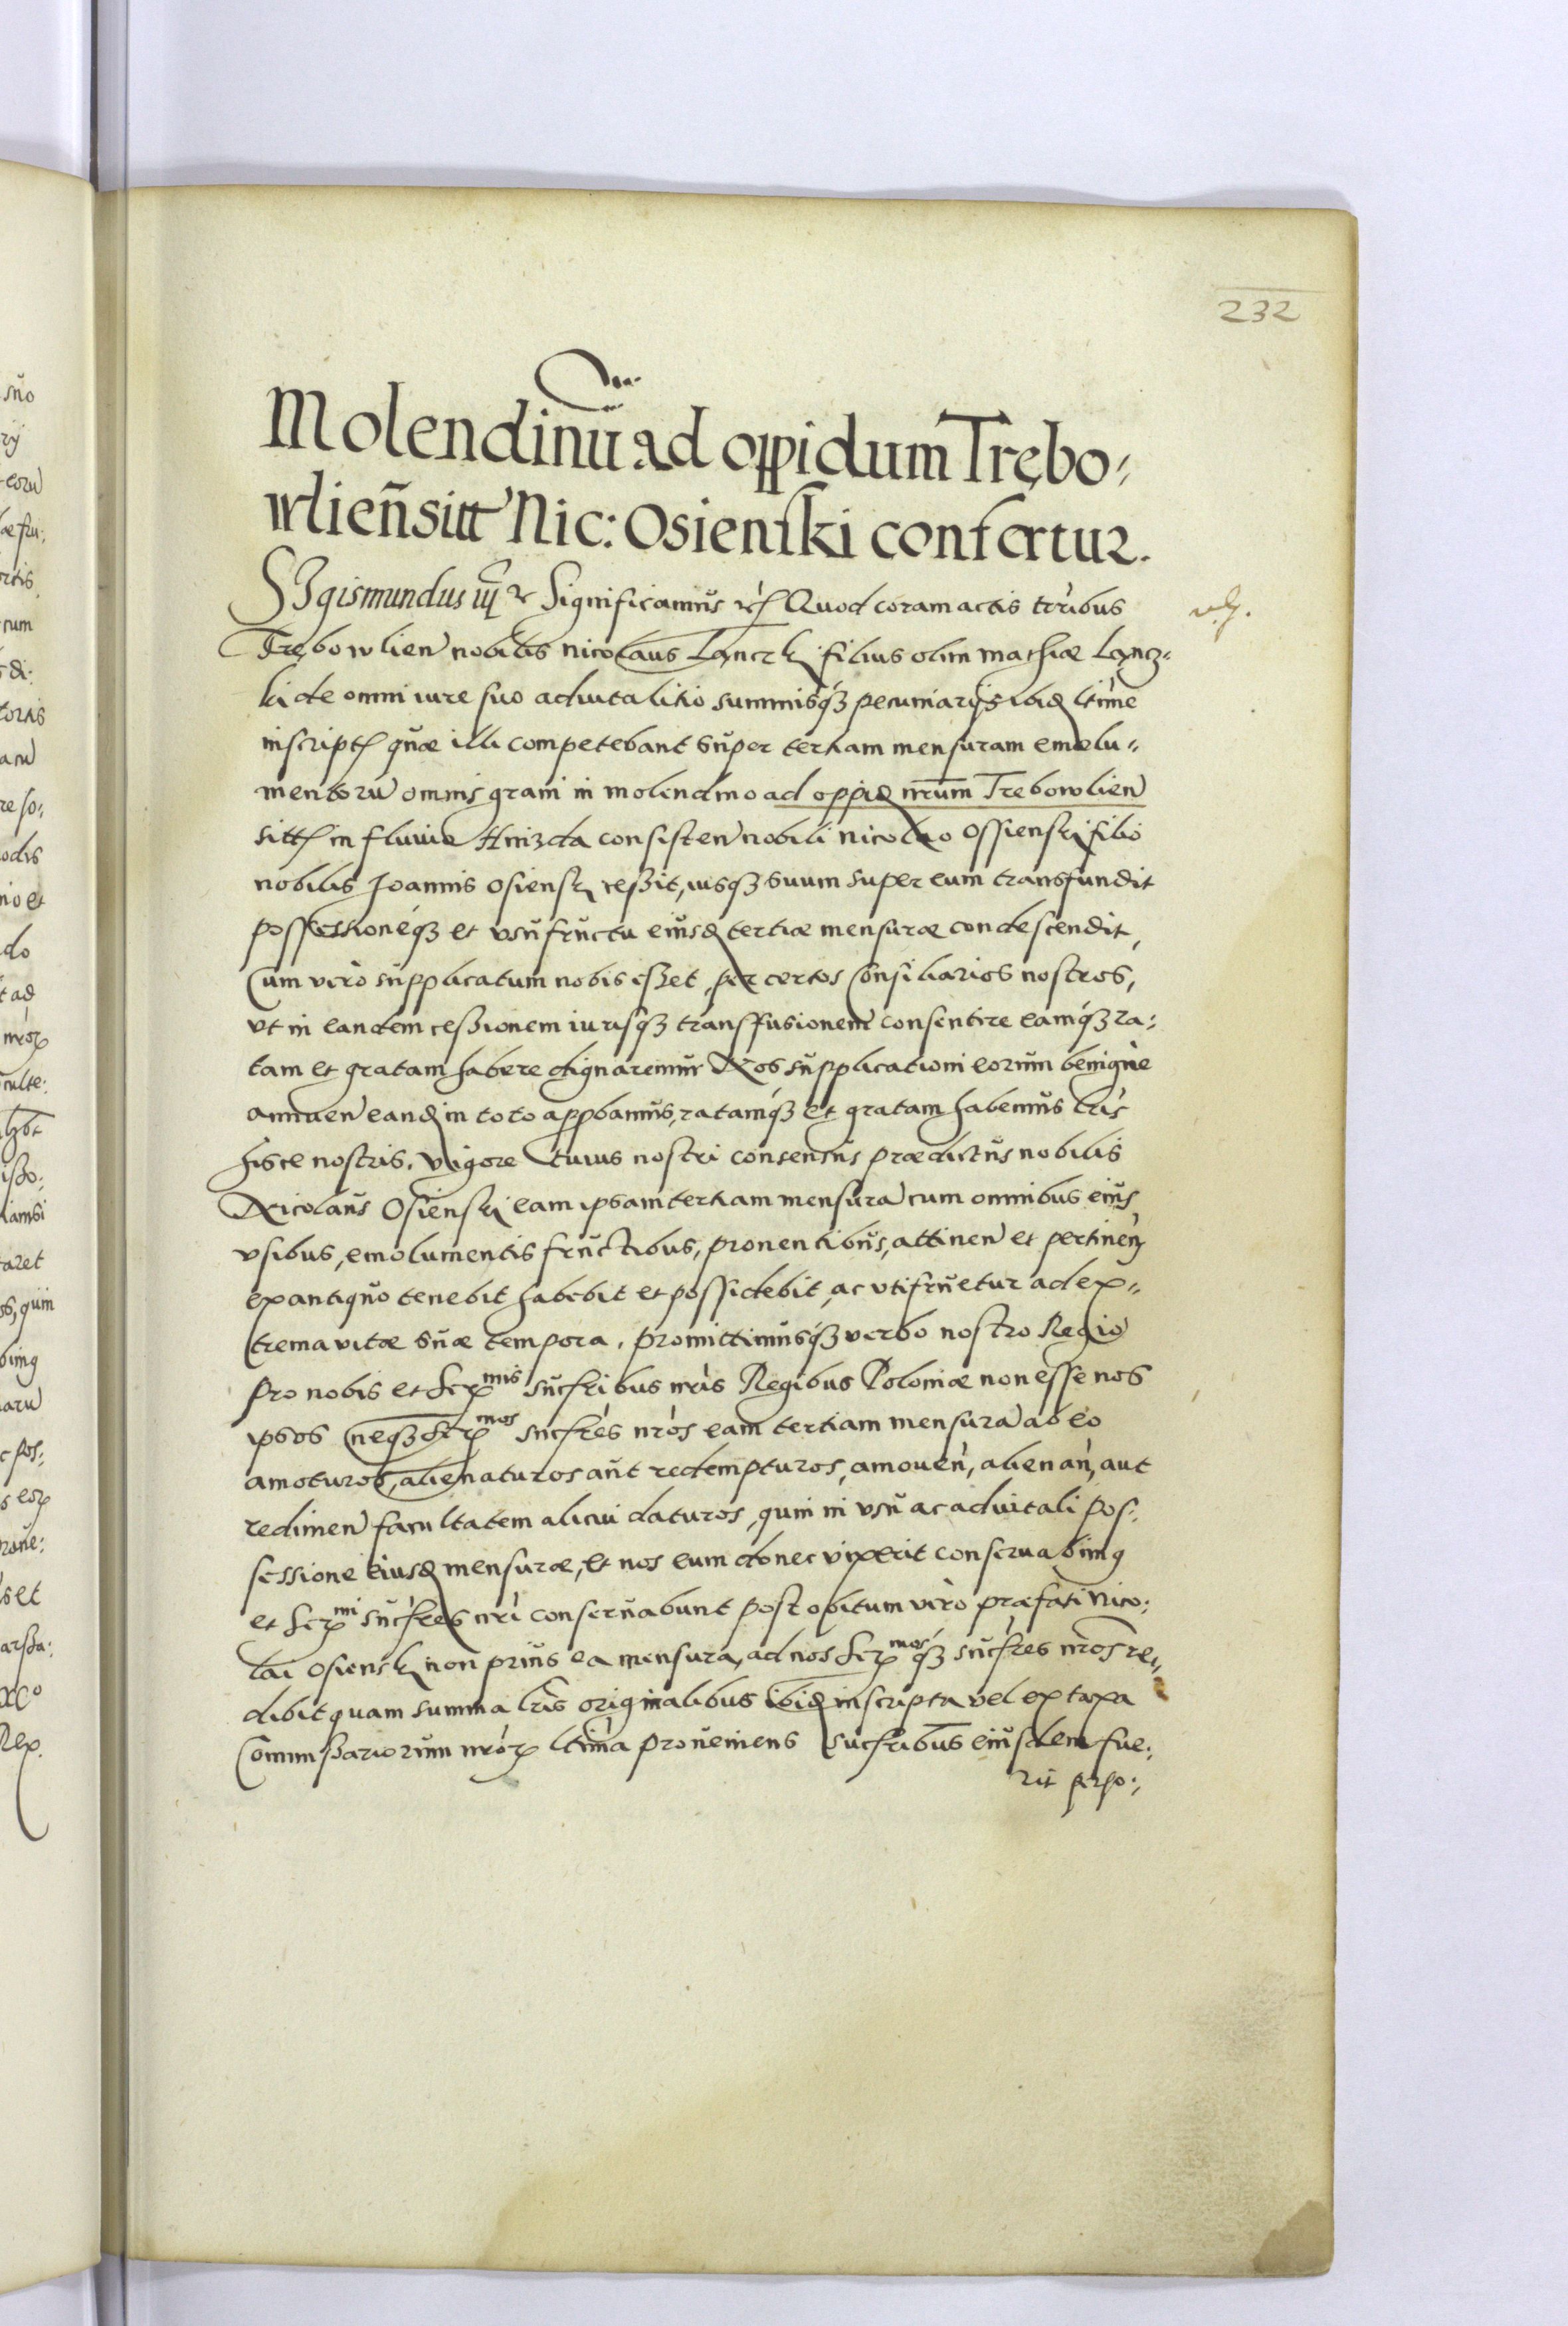 232
Molendinũ ad oppidum Trębo:
wlieñ sitt Nic: Osienski confertur.
SIgismundus iii etc Significamus etc Quod coram actis trribus
Trębowlien nobilis Nicolaus Lanczki filius olim Mathiæ Lancz:
ki de omni iure suo aduitalitio summisq́3 pecuniarijs ibid ltime
inscript quæ illi competebant super tertiam mensuram emolu:
mentoru omnis grani in molendino ad oppid nrum Trebowlien
sitt in fluuio Hnizda consisten nobili Nicolao Ossienski filio
nobilis Joannis Osienski cessit, iusq3 suum super eum transfundit
possessionéq3 et vsufructu eiusd tertiæ mensuræ condescendit,
Cum verò supplicatum nobis esset, per certos Consiliarios nostros,
vt in eandem cessionem iurisq3 transfusionem consentire eamq́3 ra:
tam et gratam habere dignaremur Nos supplicationi eorum benignè
annuen eand in toto approbamus, ratamq́3 et gratam habemus lris
hisce nostris. Vigore cuius nostri consensus prædictus nobilis
Nicolaus Osienski eam ipsam tertiam mensura cum omnibus eius
vsibus, emolumentis fructibus, prouentibus, attinen et pertinen
ex antiquo tenebit habebit et possidebit, ac vtifruetur ad ex:
trema vitæ suæ tempora. Promittimusq́3 verbo nostro Regio
pro nobis et Ser mis sucribus nris Regibus Poloniæ non esse nos
ipsos neq3 Ser mos sucres nros eam tertiam mensura ab eo
amoturos, alienaturos aut redempturos, amouen, alienan, aut
redimen facultatem alicui daturos, quin in vsu ac aduitali pos:
sessione eiusd mensuræ, et nos eum donec vixerit conseruabimg
et Ser mi sucres nri conseruabunt post obitum verò præfati Nico:
lai Osienski non prius ea mensura, ad nos Ser mos q́3 sucres nros re:
dibit quam summa lris originalibus ibid inscripta vel ex taxa
Commissariorum nror ltima proueniens sucribus eiusdem fue:
rit perso: